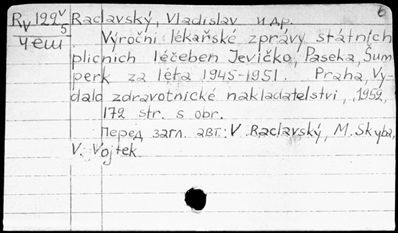 Rv 122v Raclavský, Vladislav и др.
5
чеш Výroční lékařské zprávy státních
plicních léčeben Jevíčko, Paseka, Šum
perk za léta 1945-1951. Praha, Vy-
dalo zdravotnické nakladatelství, 1952,
172 str. s obr.
Перед загл. авт: V. Raclavský, M. Skyba,
V. Vojtek.